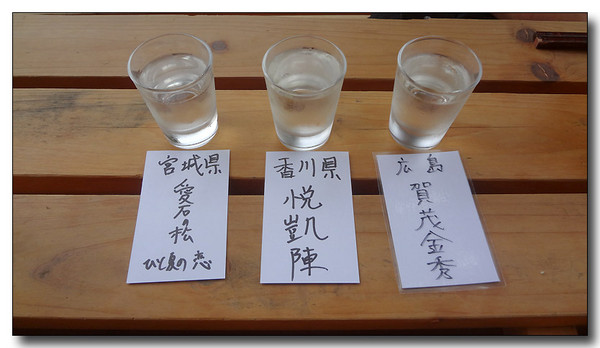 宮城県
愛石の松
ひと夏の恋
香川県
悦凱陣
広島
賀茂金秀